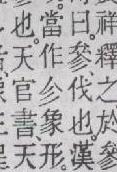 祥釋之於參
曰。參、伐也。漢
當作㐱象形。
也。天官書天